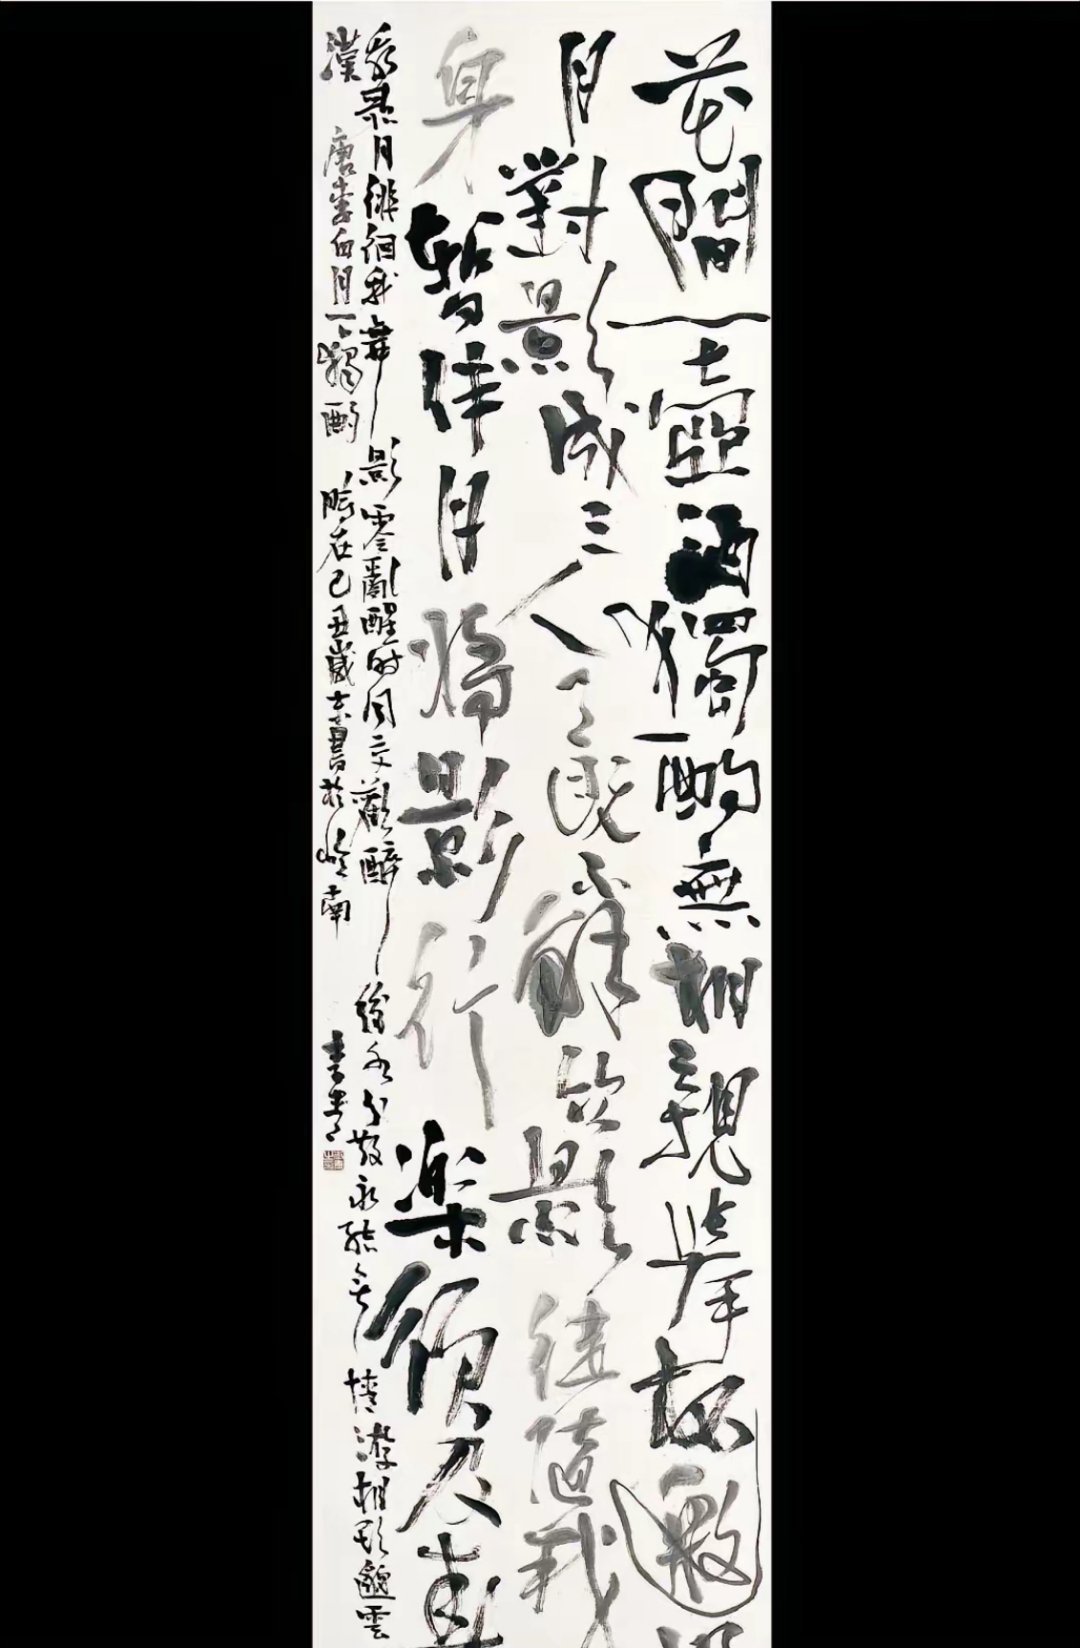 花間一壺酒獨酌無相親舉杯邀明
月對影成三人既不解飲影徒隨我
身暫伴月將影行樂須及春
我歌月徘徊我舞影零亂醒時同交歡醉後各分散永結無情游相期邈雲
漢 唐李白月下獨酌 時在己丑歲書於嶺南